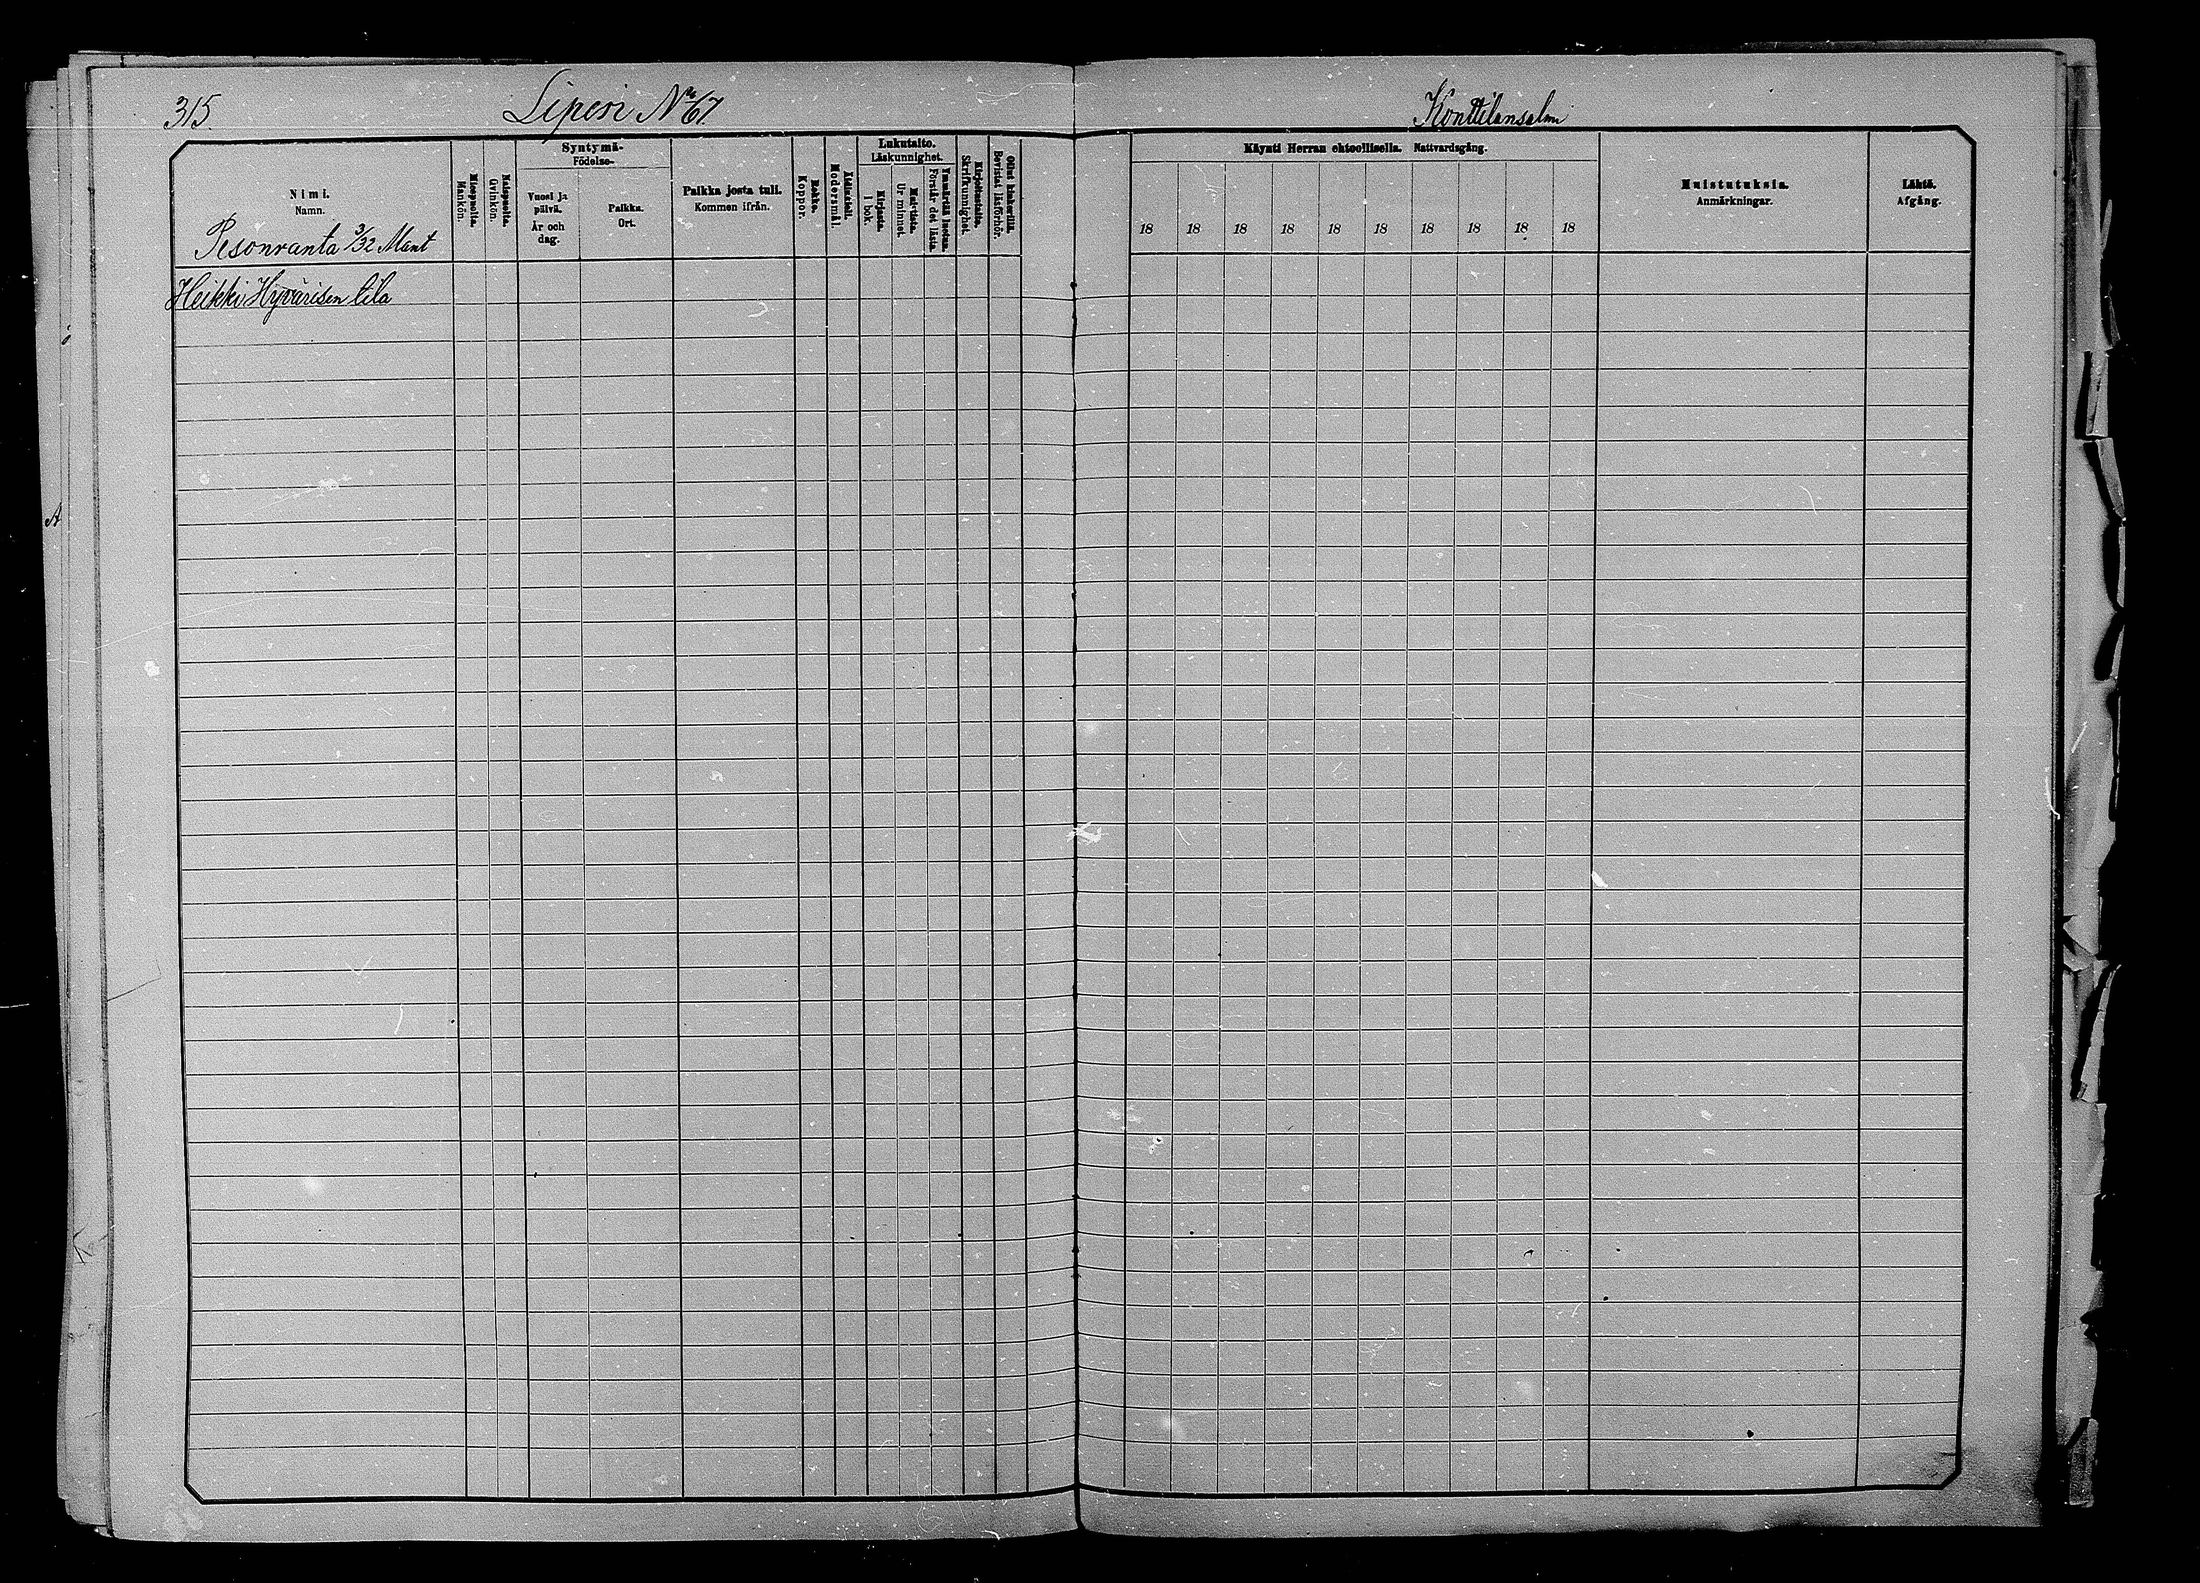 315.
Liperi No 67.
Konttilansalmi
Nimi.
Namn.
Pesonranta 3/32 Mant
Miespuolia.
Mankön.
Naispuolia.
Qvinkön.
Syntymä-
Födelse-
Vuosi ja päivä.
År och dag.
Paikka.
Ort.
Paikka josta tuli.
Kommen ifrån.
Rokko.
Koppor.
Äidinkieli.
Modersmål.
Lukutaito.
Läskunnighet.
Kirjasta.
I bok.
Muistista.
Ur minnet.
Ymmärtää luetun.
Förstår det lästa.
Kirjoitustaito.
Skrifkunnighet.
Ollut kinkerillä.
Bevistat läsförhör.
Käynti Herran ehtoollisella. Nattvardsgång.
18 18 18 18 18 18 18 18 18 18
Muistutuksia.
Anmärkningar.
Lähtö.
Afgång.
Heikki Hyvärisen tila